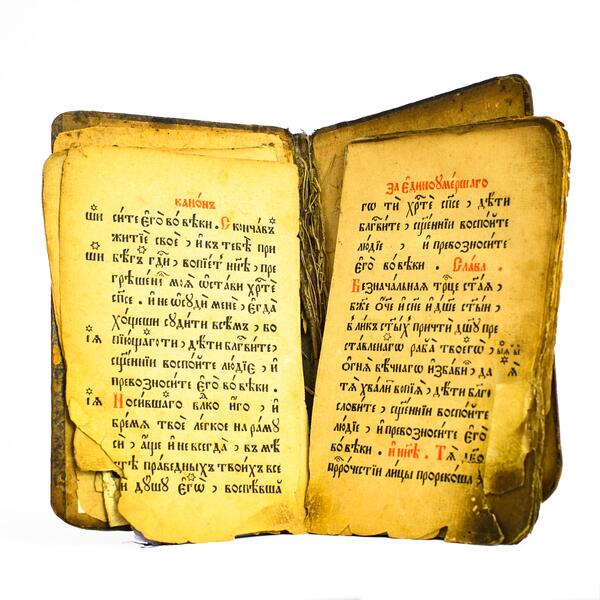 канѡ́нъ
си́те є҆го̀ во́ вѣки . Скончавъ
ши
житїе свое , и҆ къ тебѣ̀ при
бѣ́гъ гдⷭ҇и , вопїе́тъ ни҃нѣ , пре
ши
грѣше́нїѧ моѧ̀ ѡ҆ста́ви хрⷭ҇тѐ
сп҃се . и҆ не ѡ҆сꙋдѝ менѐ , є҆гда̀
хо́щеши сꙋди́ти всѣ̑мъ , во
пїю́щаго ти , дѣ́ти бл҃гви́те ,
їѧ
сщ҃е́нницы воспо́йте лю́дїе , и҆
превозноси́те є҆го̀ во́ вѣки .
Носи́вшаго влⷣко и҆́го , и҆
їѧ
бре́мѧ твоѐ ле́гкое на ра́мꙋ
сѝ , а҆́ще и҆ не всегда̀ , въ мѣ́
стѣ пра́ведныхъ твои́хъ все
ли дꙋ́шꙋ є҆гѡ̀ , воспѣ́вша
за є҆ди́ноꙋме́ршаго
гѡ тѝ хрⷭ҇тѐ сп҃се , дѣ́ти
бл҃гви́те , сщ҃е́нницы воспо́йте
лю́дїе , и҆ превозноси́те
є҆го̀ во́ вѣки . Сла́ва .
Безнача́льнаѧ трⷪ҇це ст҃а́ѧ ,
бж҃е ѻ҆́ч҃е и҆ сн҃е и҆ дш҃е ст҃ы́и ,
в ли́къ ст҃ы́хъ причтѝ дш҃ꙋ пре
ста́вленагѡ раба̀ твоегѡ̀ ,
ѻ҆гнѧ̀ вѣ́чнаго и҆зба́ви , да
тѧ̀ хвали́ вопїѧ̀ , дѣ́ти бл҃го
слови́те , сщ҃е́нницы воспо́йте
лю́дїе , и҆ превозноси́те є҆го̀
во́ вѣки . и҆ ни҃нѣ . Тѧ̀
прⷪ҇ро́честїи ли́цы прореко́ша